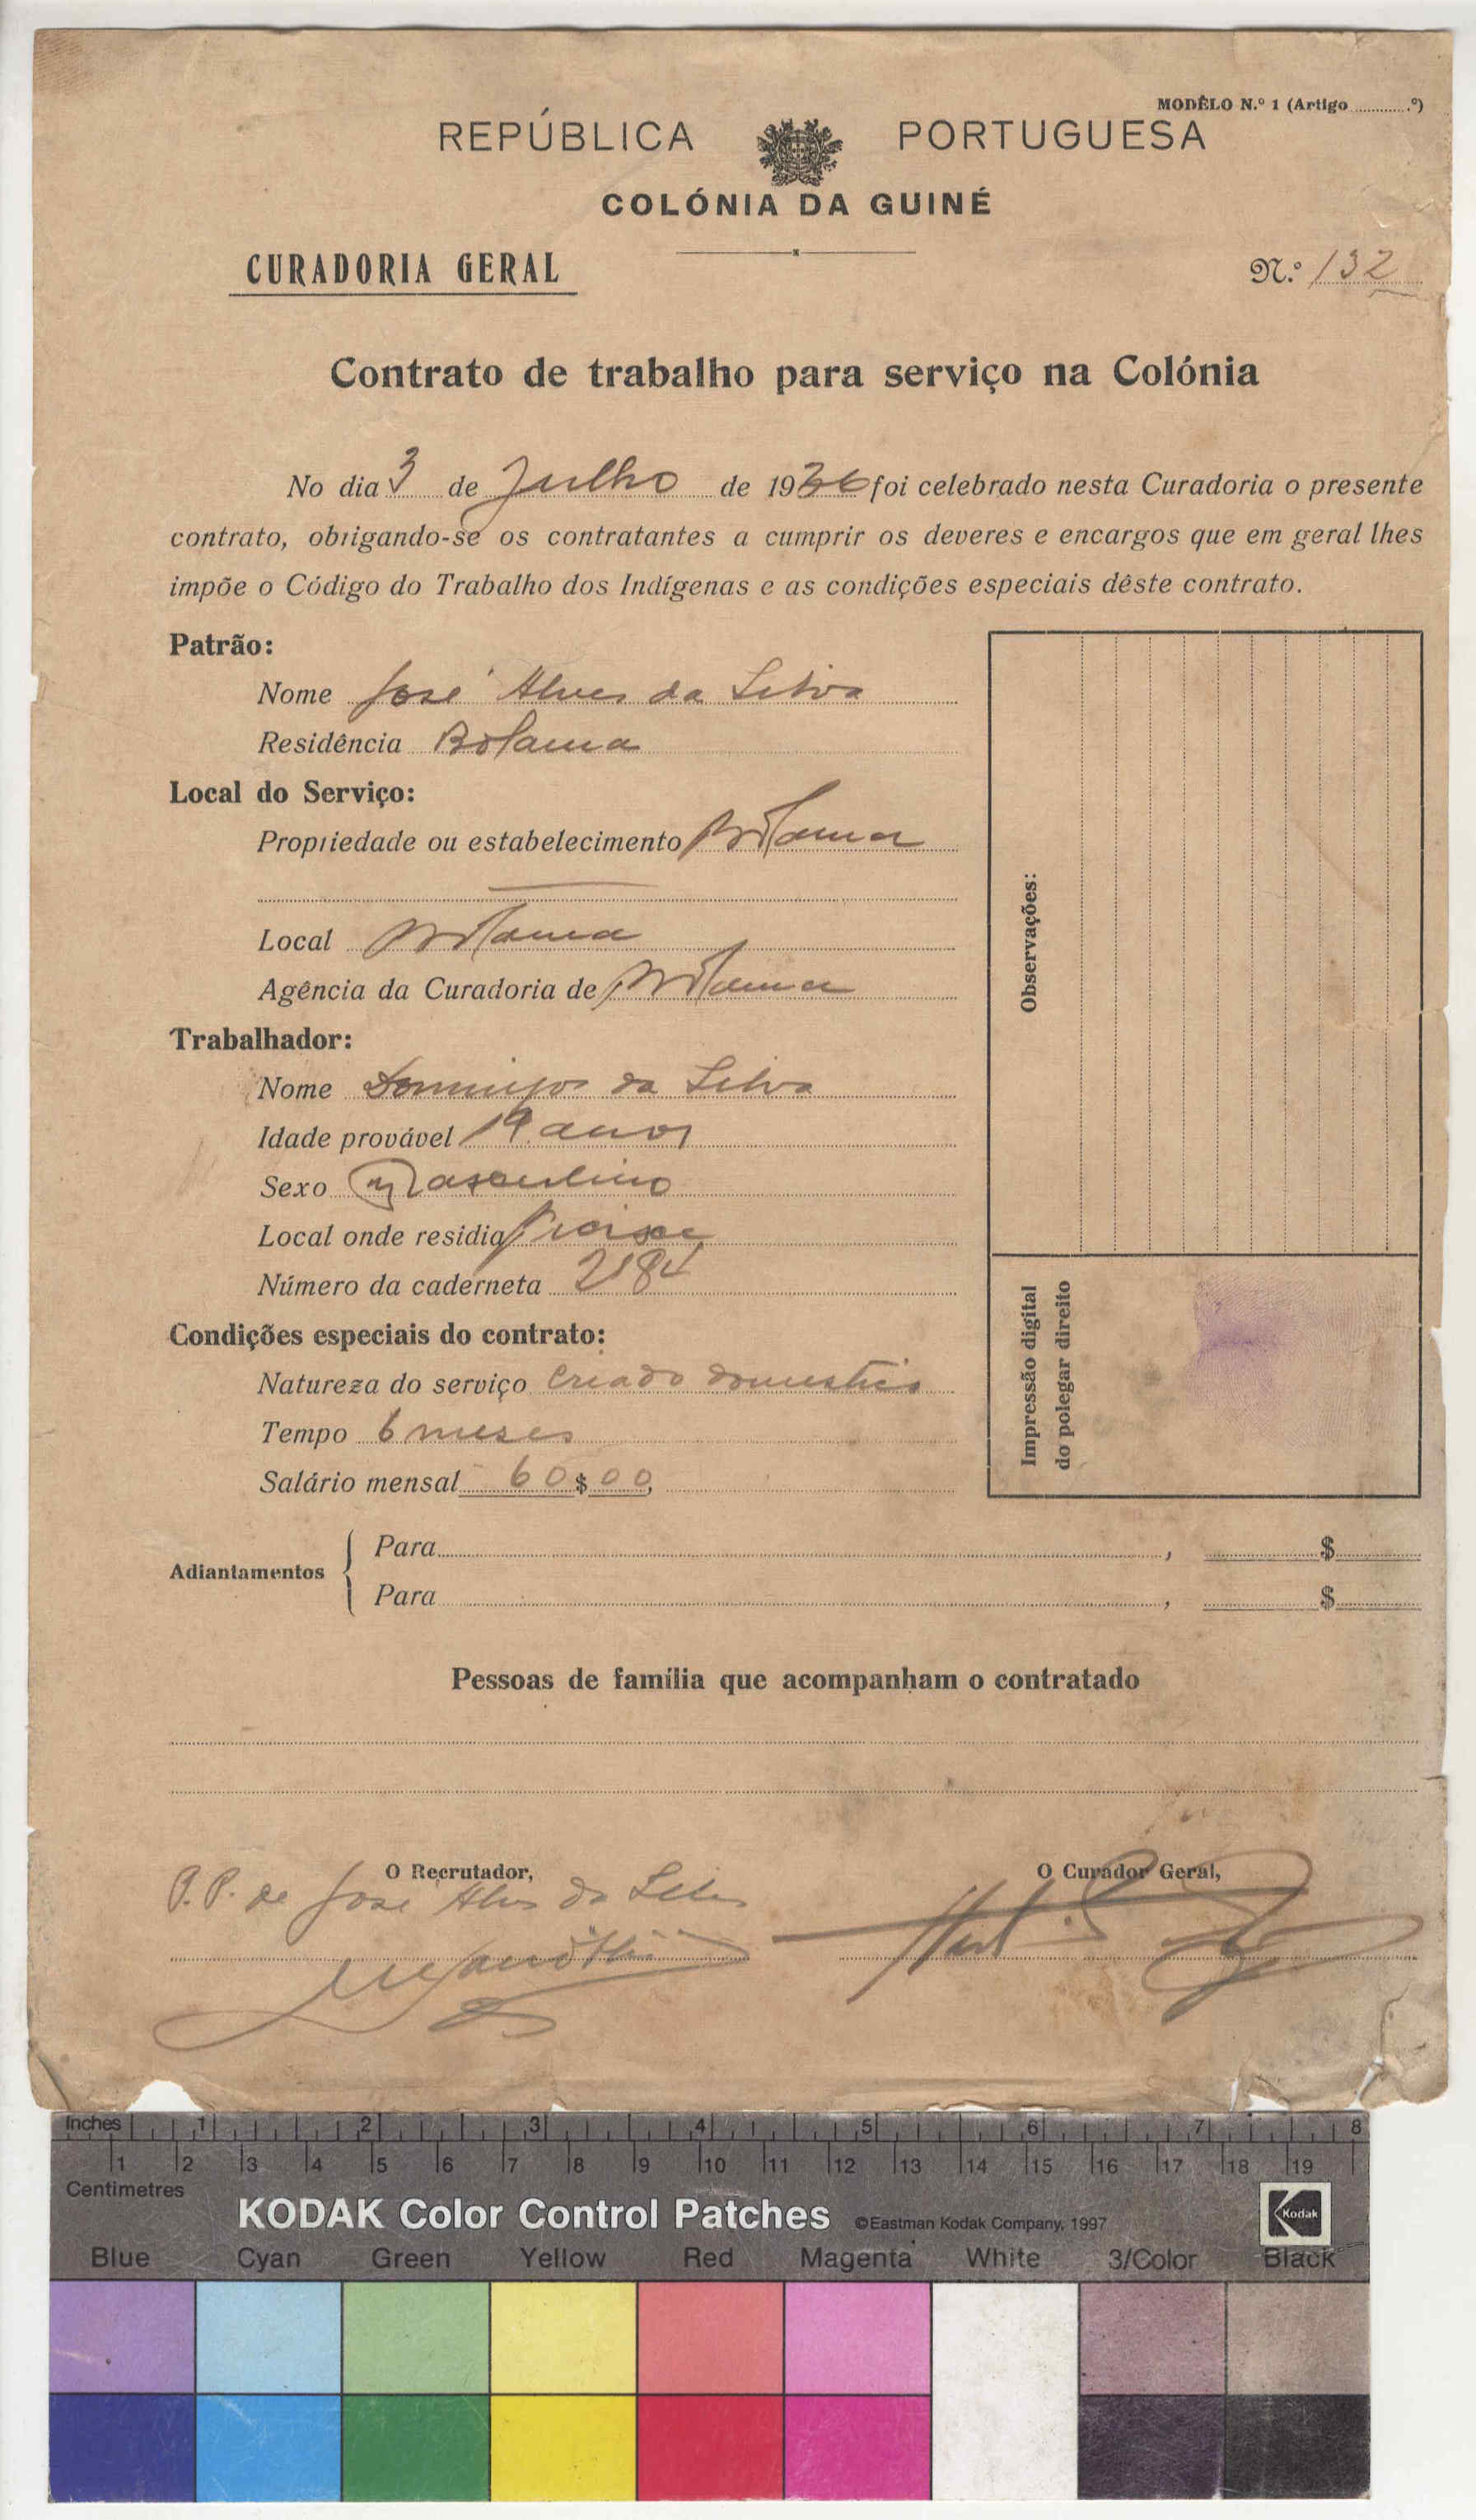 MODÊLO N.º 1 (Artigo ............º)
REPÚBLICA PORTUGUESA
COLÓNIA DA GUINÉ
CURADORIA GERAL
N.º 132
Contrato de trabalho para serviço na Colónia
No dia 3 de Julho de 1936 foi celebrado nesta Curadoria o presente
contrato, obrigando-se os contratantes a cumprir os deveres e encargos que em geral lhes
impõe o Código do Trabalho dos Indígenas e as condições especiais dêste contrato.
Patrão:
Nome José Alves da Silva
Residência Bolama
Local do Serviço:
Propriedade ou estabelecimento Bolama
Local Bolama
Agência da Curadoria de Bolama
Trabalhador:
Nome Domingos da Silva
Idade provável 19 anos
Sexo Masculino
Local onde residia
Número da caderneta 2184
Condições especiais do contrato:
Natureza do serviço Criado domestico
Tempo 6 meses
Salário mensal 60$00,
Observações:
Impressão digital
do polegar direito
Adiantamentos
Para , $
Para , $
Pessoas de família que acompanham o contratado
O Recrutador,
O Curador Geral,
P.P. de José Alves da Silva
Inches 1 2 3 4 5 6 7 8
1 2 3 4 5 6 7 8 9 10 11 12 13 14 15 16 17 18 19
Centimetres
KODAK Color Control Patches ©Eastman Kodak Company, 1997 Kodak
Blue Cyan Green Yellow Red Magenta White 3/Color Black